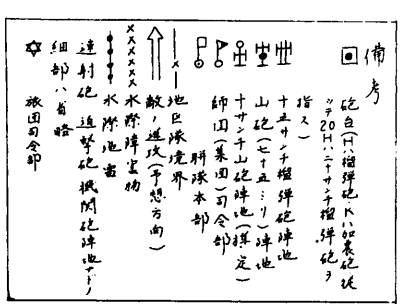 備考
砲台(Hハ榴弾砲Kハ加農砲
シテ20Hハ二十サンチ榴弾砲ヲ
指ス)
十五サンチ榴弾砲陣地
山砲(七十五ミリ)陣地
十サンチ山砲陣地(推定)
師団(集団)司令部
聯隊本部
地区隊境界
敵ノ進攻(予想方向)
水際障害物
水際地雷
速射砲 迫撃砲 機関砲陣地ナドノ
細部ハ省略
旅団司令部